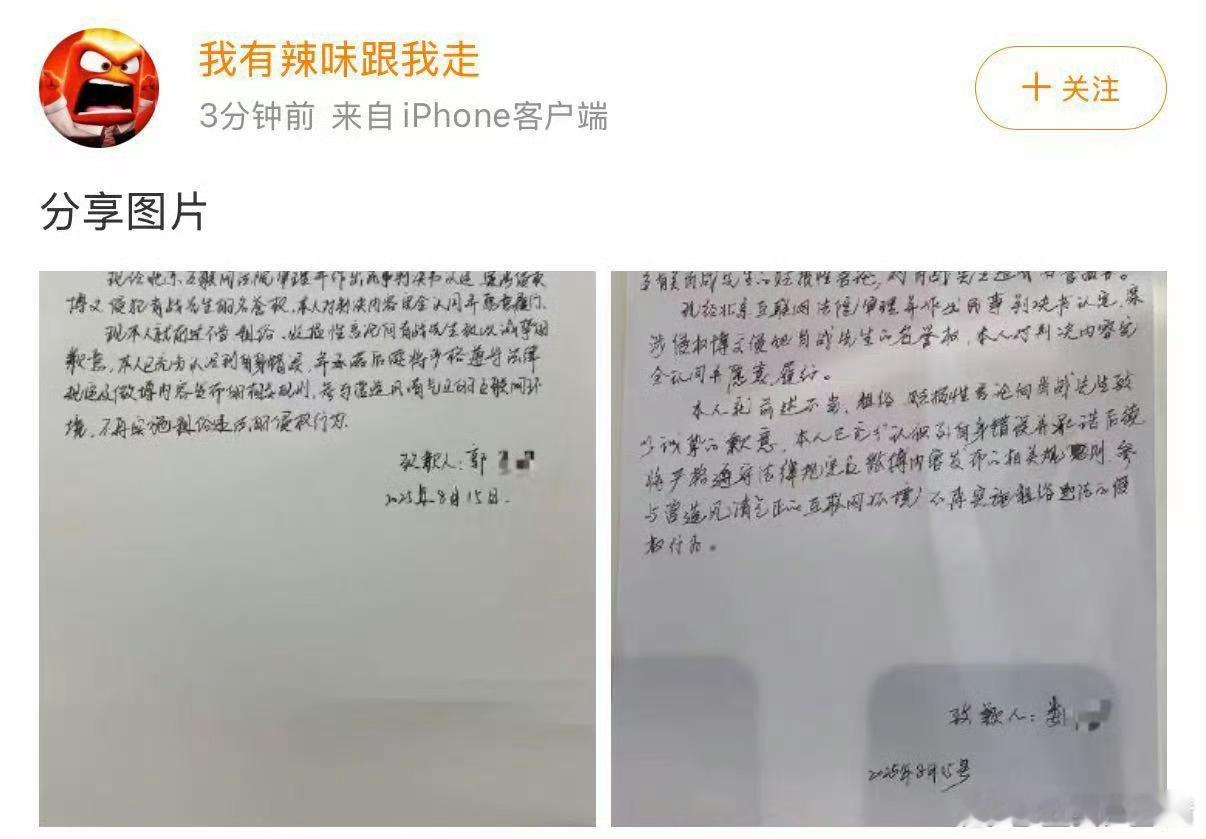 我有辣味跟我走
3分钟前 来自 iPhone客户端
+ 关注
分享图片
现经北京互联网法院审理并作出民事判决书认定,
博文侵犯肖战先生的名誉权,本人对判决内容完全认同并愿意履行。
现本人就前述不当、粗俗、贬损性言论向肖战先生致以诚挚的
歉意,本人已充分认识到自身错误,并承诺后续将严格遵守法律
规定及微博内容发布的相关规则,参与营造风清气正的互联网环
境,不再实施粗俗违法的侵权行为。
致歉人:郭
2025年8月15日.
多有关肖战先生的贬损性言论,对肖战先生造成
现经北京互联网法院审理并作出民事判决书认定,案
涉侵权博文侵犯肖战先生的名誉权,本人对判决内容完
全认同并愿意履行。
本人就前述不当、粗俗、贬损性言论向肖战先生致
以诚挚的歉意,本人已充分认识到自身错误并承诺后续
将严格遵守法律规定及微博内容发布的相关规则,参
与营造风清气正的互联网环境,不再实施粗俗违法的侵
权行为。
致歉人:娄
2025年8月15号